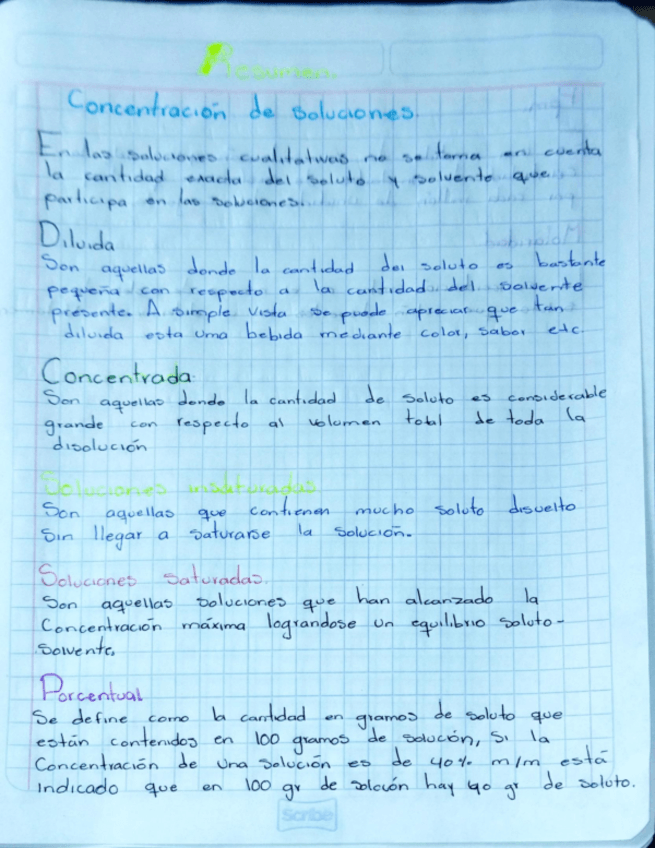 Resumen.
Concentración de soluciones.
En las soluciones cualitativas no se toma en cuenta
la cantidad exacta del soluto y solvente que
participa en las soluciones.
Diluida
Son aquellas donde la cantidad del soluto es bastante
pequeña con respecto a la cantidad del solvente
presente. A simple vista se puede apreciar que tan
diluida esta una bebida mediante color, sabor etc
Concentrada
Son aquellas donde la cantidad de soluto es considerable
grande con respecto al volumen total de toda la
disolución
Soluciones insaturadas
Son aquellas que contienen mucho soluto disuelto
Sin llegar a saturarse la solución.
Soluciones saturadas.
Son aquellas soluciones que han alcanzado la
Concentración máxima lograndose un equilibrio soluto-
solvente.
Porcentual
Se define como la cantidad en gramos de soluto que
están contenidos en 100 gramos de solución, Si la
Concentración de una solución es de 40% m/m está
indicado que en 100 gr de soloción hay 40 gr de soluto.
Scribe